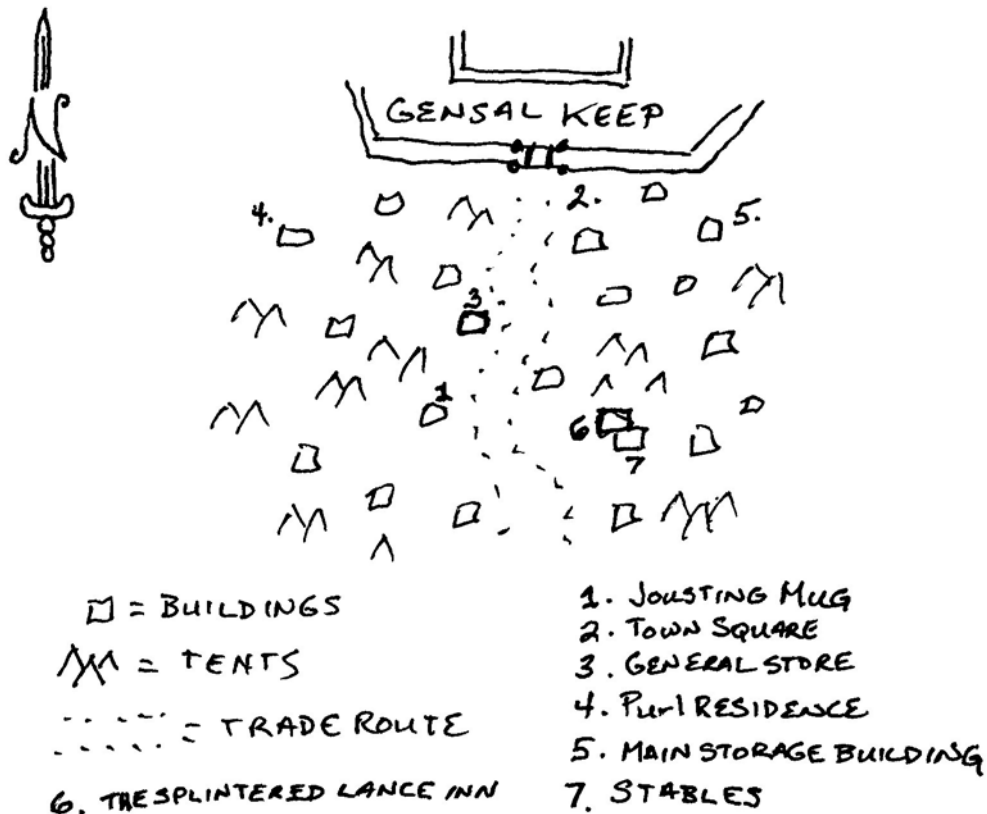 N
GENSAL KEEP
2.
4.
5.
3
1
6
7
= BUILDINGS
= TENTS
= TRADE ROUTE
6. THE SPLINTERED LANCE INN
1. JOUSTING MUG
2. TOWN SQUARE
3. GENERAL STORE
4. Purl RESIDENCE
5. MAIN STORAGE BUILDING
7. STABLES